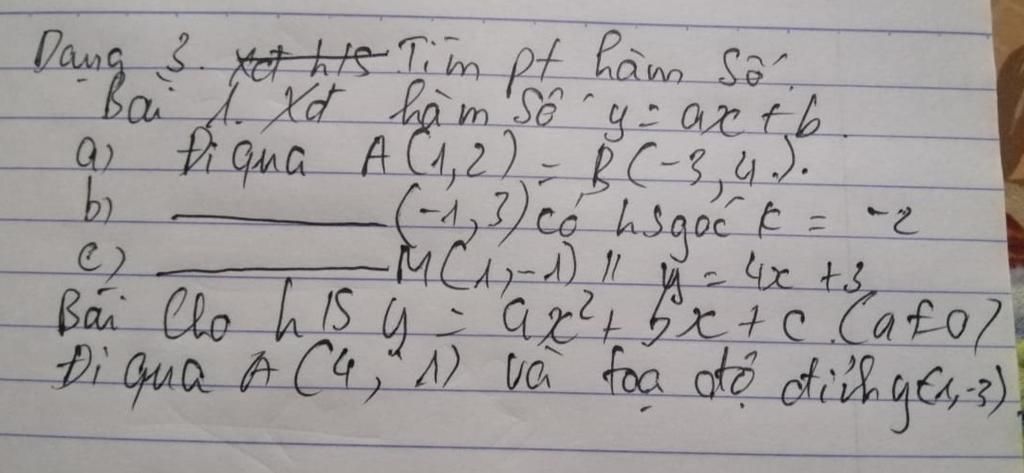 Dạng 3. Xđ h/S Tìm pt hàm số.
Bài 1. Xđ hàm số y = ax + b.
a) Đi qua A(1,2) - B(-3,4).
b) ———— (-1,3) có hsgóc k = -2
c) ———— M(1,-1) // y = 4x + 3
Bài Cho h/S y = ax² + bx + c. (a≠0)
Đi qua A(4, 1) và toạ độ đỉnh y(-1,-3)